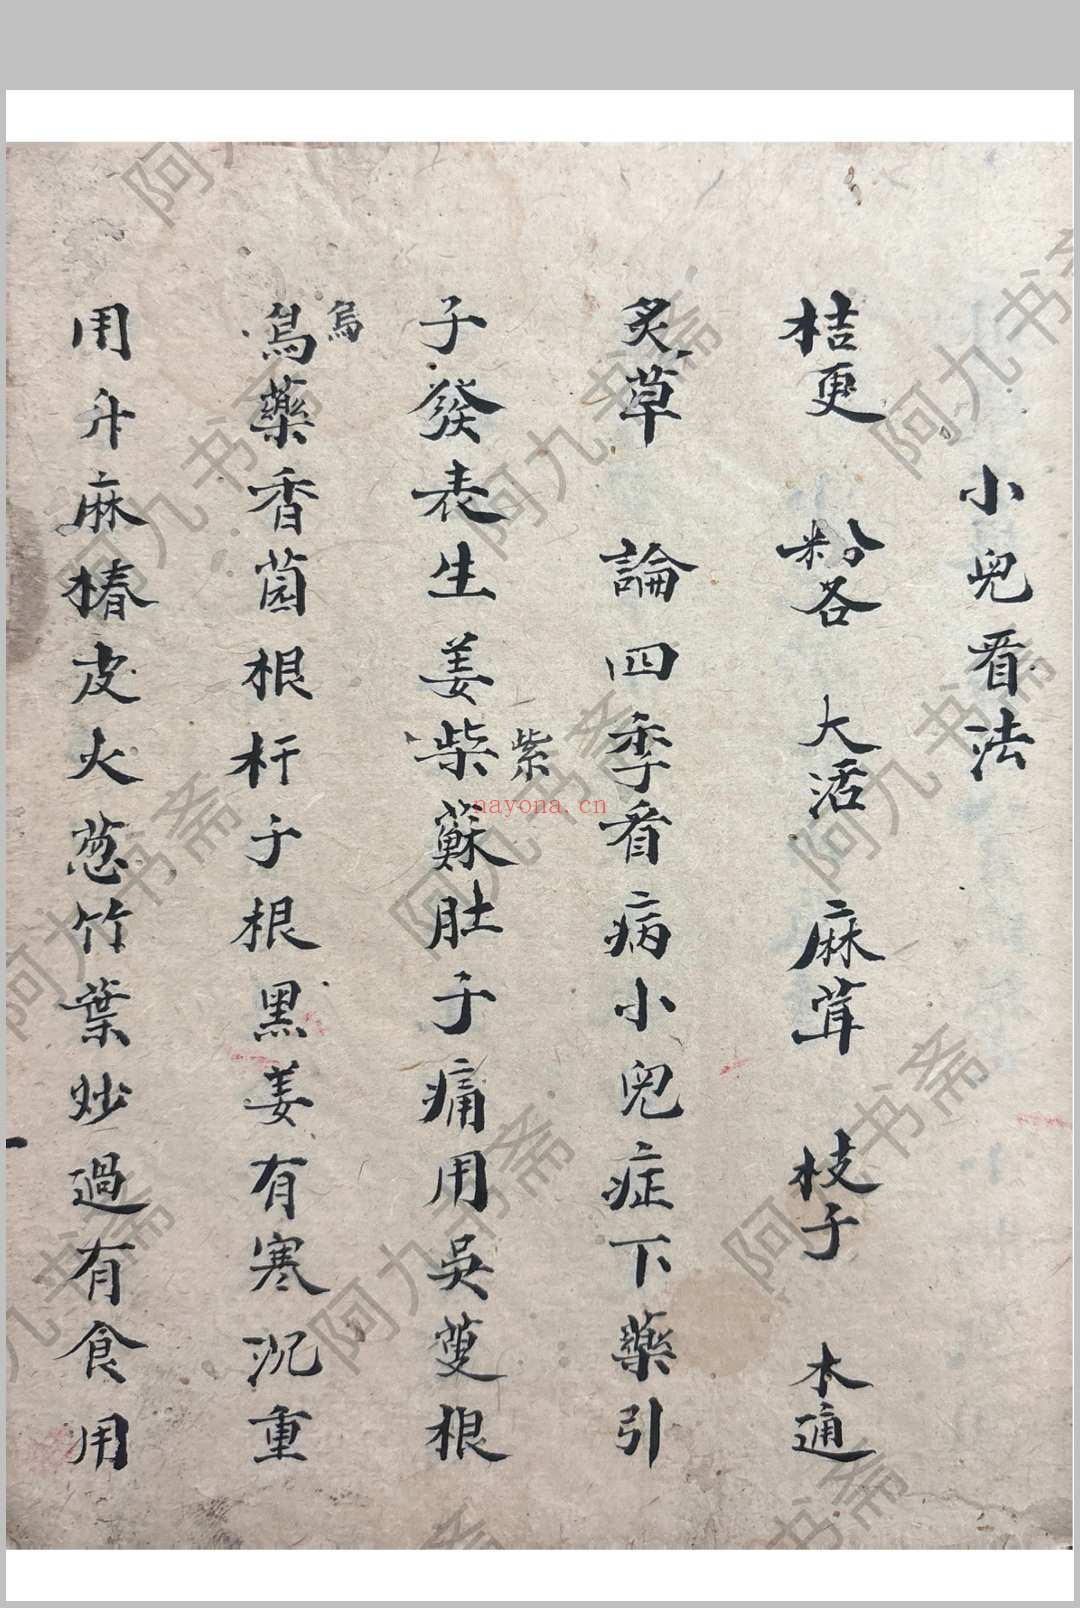 小兒看法
桔更 粉各 大活 麻茸 枝子 木通
炙草 論四季看病小兒症下藥引
子發表生姜柴蘇肚子痛用吳萸根
紫
烏藥香茵根杆子根黑姜有寒沉重
烏
用升麻椿皮火葱竹葉炒過有食用
nayona.cn
阿九书斋